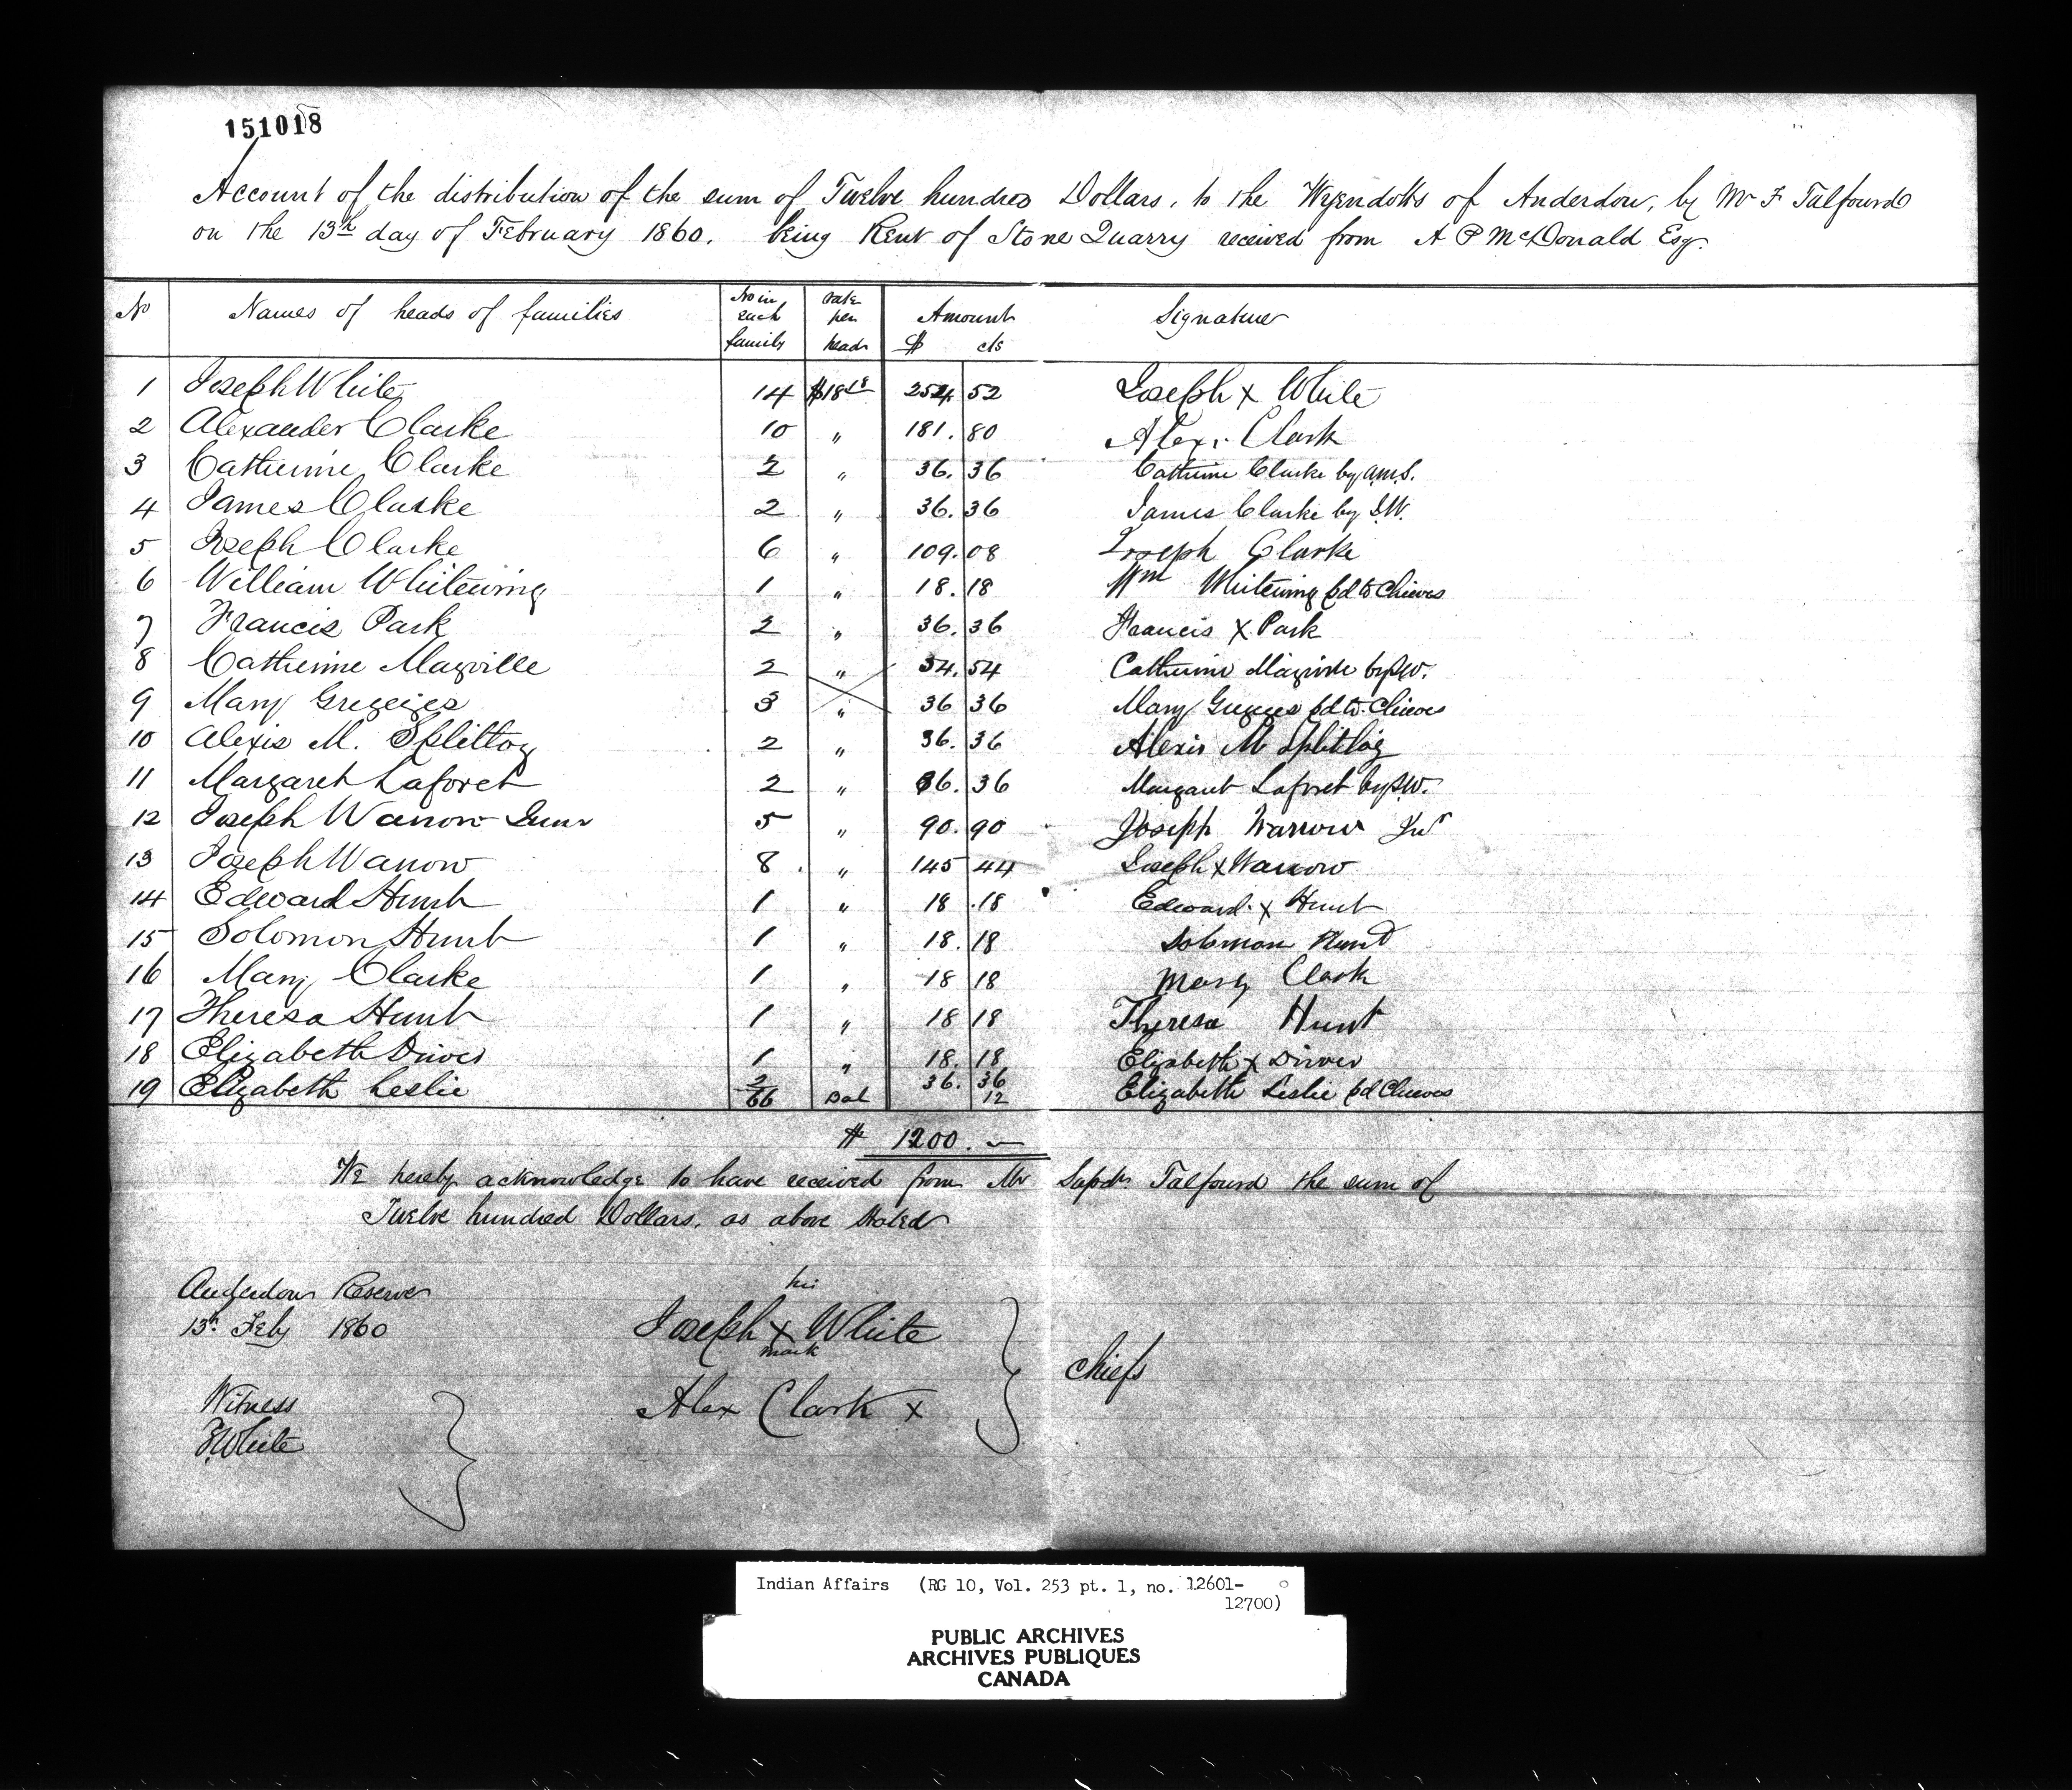 151018
Account of the distribution of the sum of Twelve hundred Dollars, to the Wyendotts of Anderdon, by Mr F Talfourd
on the 13th day of February 1860. being Rent of Stone Quarry received from A P McDonald Esq.
No Names of heads of families No in each family rate per head Amount $ cts Signature
1 Joseph White 14 $18 18 254. 52 Joseph x White
2 Alexander Clarke 10 " 181. 80 Alex. Clark
3 Catherine Clarke 2 " 36. 36 Catherine Clarke by A.M.S.
4 James Clarke 2 " 36. 36 James Clarke by J.W.
5 Joseph Clarke 6 " 109. 08 Joseph Clarke
6 William Whitewing 1 " 18. 18 Wm Whitewing pd to Chieves
7 Francis Park 2 " 36. 36 Francis X Park
8 Catherine Mayville 2 " 54. 54 Catherine Mayville by J.W.
9 Mary Greyeyes 3 " 36 36 Mary Greyeyes pd to Chieves
10 Alexis M. Splitlog 2 " 36. 36 Alexis M Splitlog
11 Margaret Laforet 2 " 36. 36 Margaret Laforet by J.W.
12 Joseph Warrow Junr 5 " 90. 90 Joseph Warrow Jnr
13 Joseph Warrow 8 " 145 44 Joseph x Warrow
14 Edward Hunt 1 " 18 .18 Edward x Hunt
15 Solomon Hunt 1 " 18. 18 Solomon Hunt
16 Mary Clarke 1 " 18 18 Mary Clark
17 Theresa Hunt 1 " 18 18 Theresa Hunt
18 Elizabeth Driver 1 " 18. 18 Elizabeth x Driver
19 Elizabeth Leslie 2 36. 36 Elizabeth Leslie pd Chieves
66 Bal 12
$ 1200. —
We hereby acknowledge to have received from Mr Supdt. Talfourd the sum of
Twelve hundred Dollars, as above stated
Anderdon Reserve
13th Feby 1860
his
Joseph x White
mark
Alex Clark x
Chiefs
Witness
J White
Indian Affairs (RG 10, Vol. 253 pt. 1, no. 12601-
12700)
PUBLIC ARCHIVES
ARCHIVES PUBLIQUES
CANADA